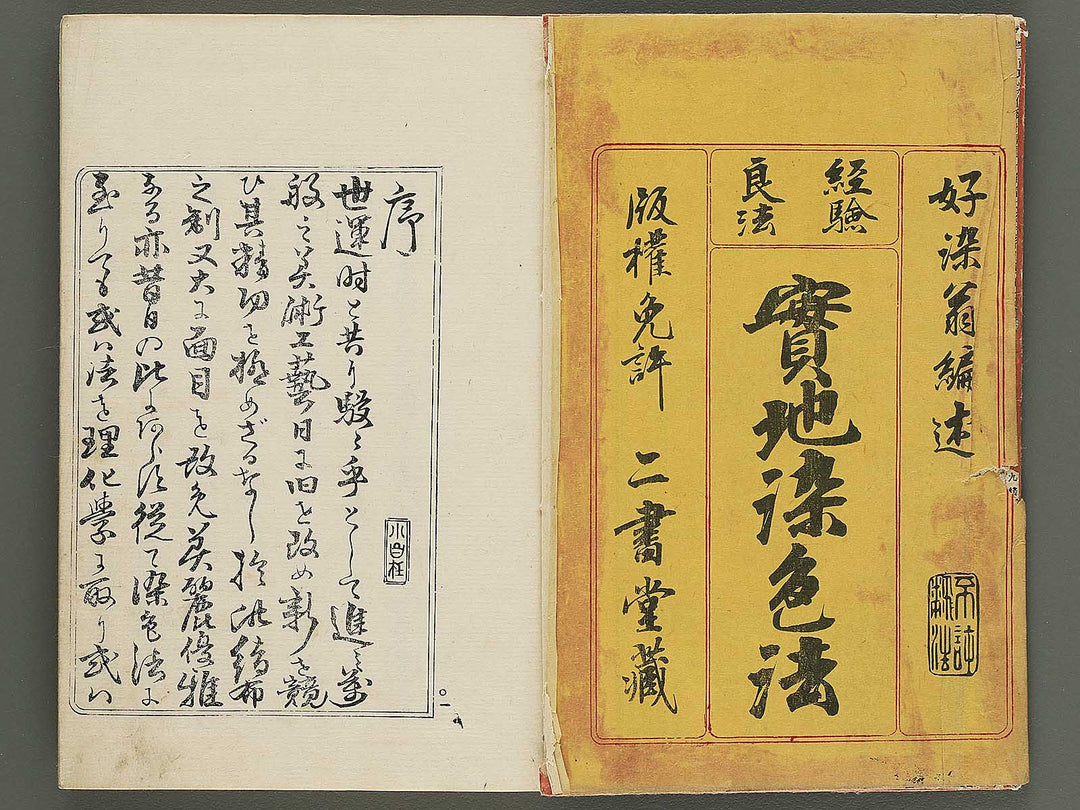 好染翁編述
経驗
良法
實地染色法
版權免許 二書堂藏
序
世運时と共に駸〻乎として進ミ萬
般之美術工藝日に旧を改め新を競
ひ其精功を極めざるなし於此布
之製又大に面目を改免美麗優雅
なる亦昔日の比にあらす従て染色法に
至りても或ハ法を理化學に取り或ハ